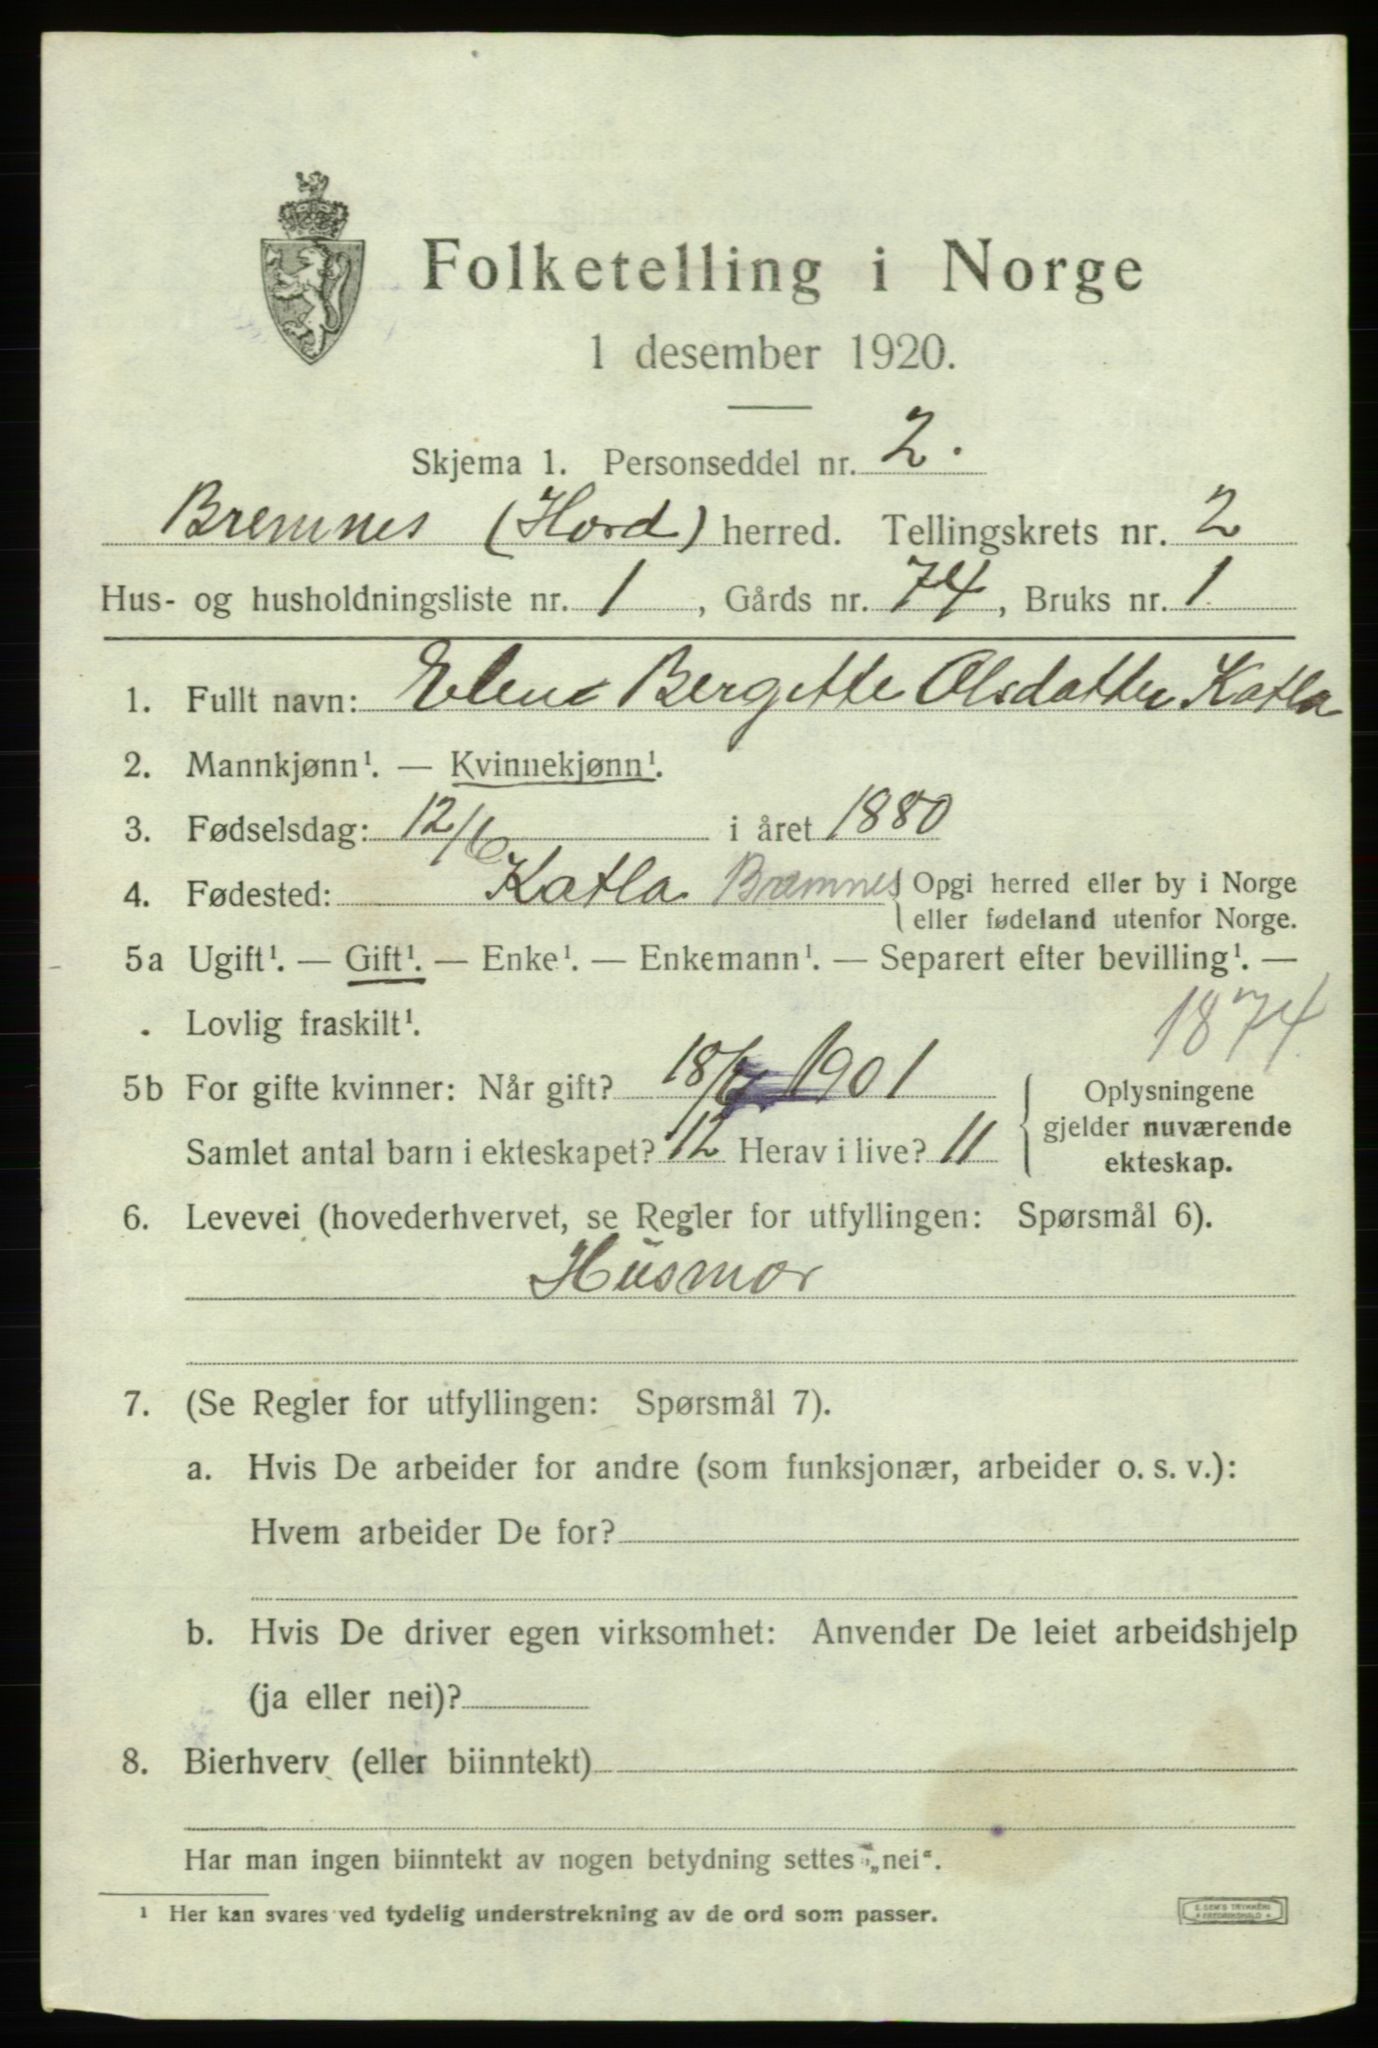 Folketelling i Norge
1 desember 1920.
Skjema 1. Personseddel nr. 2.
Bremnes (Hord) herred. Tellingskrets nr. 2
Hus- og husholdningsliste nr. 1, Gårds nr. 74, Bruks nr. 1
1. Fullt navn: Elene Bergitte Olsdatter Katla
2. Mannkjønn¹. — Kvinnekjønn¹.
3. Fødselsdag: 12/6 i året 1880
4. Fødested: Katla Bremnes { Opgi herred eller by i Norge
eller fødeland utenfor Norge.
5a Ugift¹. — Gift¹. — Enke¹. — Enkemann¹. — Separert efter bevilling¹. —
Lovlig fraskilt¹.
1874
5b For gifte kvinner: Når gift? 18/ 1901
Samlet antal barn i ekteskapet? 12 Herav i live? 11
{ Oplysningene
gjelder nuværende
ekteskap.
6. Levevei (hovederhvervet, se Regler for utfyllingen: Spørsmål 6).
Husmor
7. (Se Regler for utfyllingen: Spørsmål 7).
a. Hvis De arbeider for andre (som funksjonær, arbeider o. s. v.):
Hvem arbeider De for?
b. Hvis De driver egen virksomhet: Anvender De leiet arbeidshjelp
(ja eller nei)?
8. Bierhverv (eller biinntekt)
Har man ingen biinntekt av nogen betydning settes „nei“.
¹ Her kan svares ved tydelig understrekning av de ord som passer.
E. SEM'S TRYKKERI
• FREDRIKSHALD •